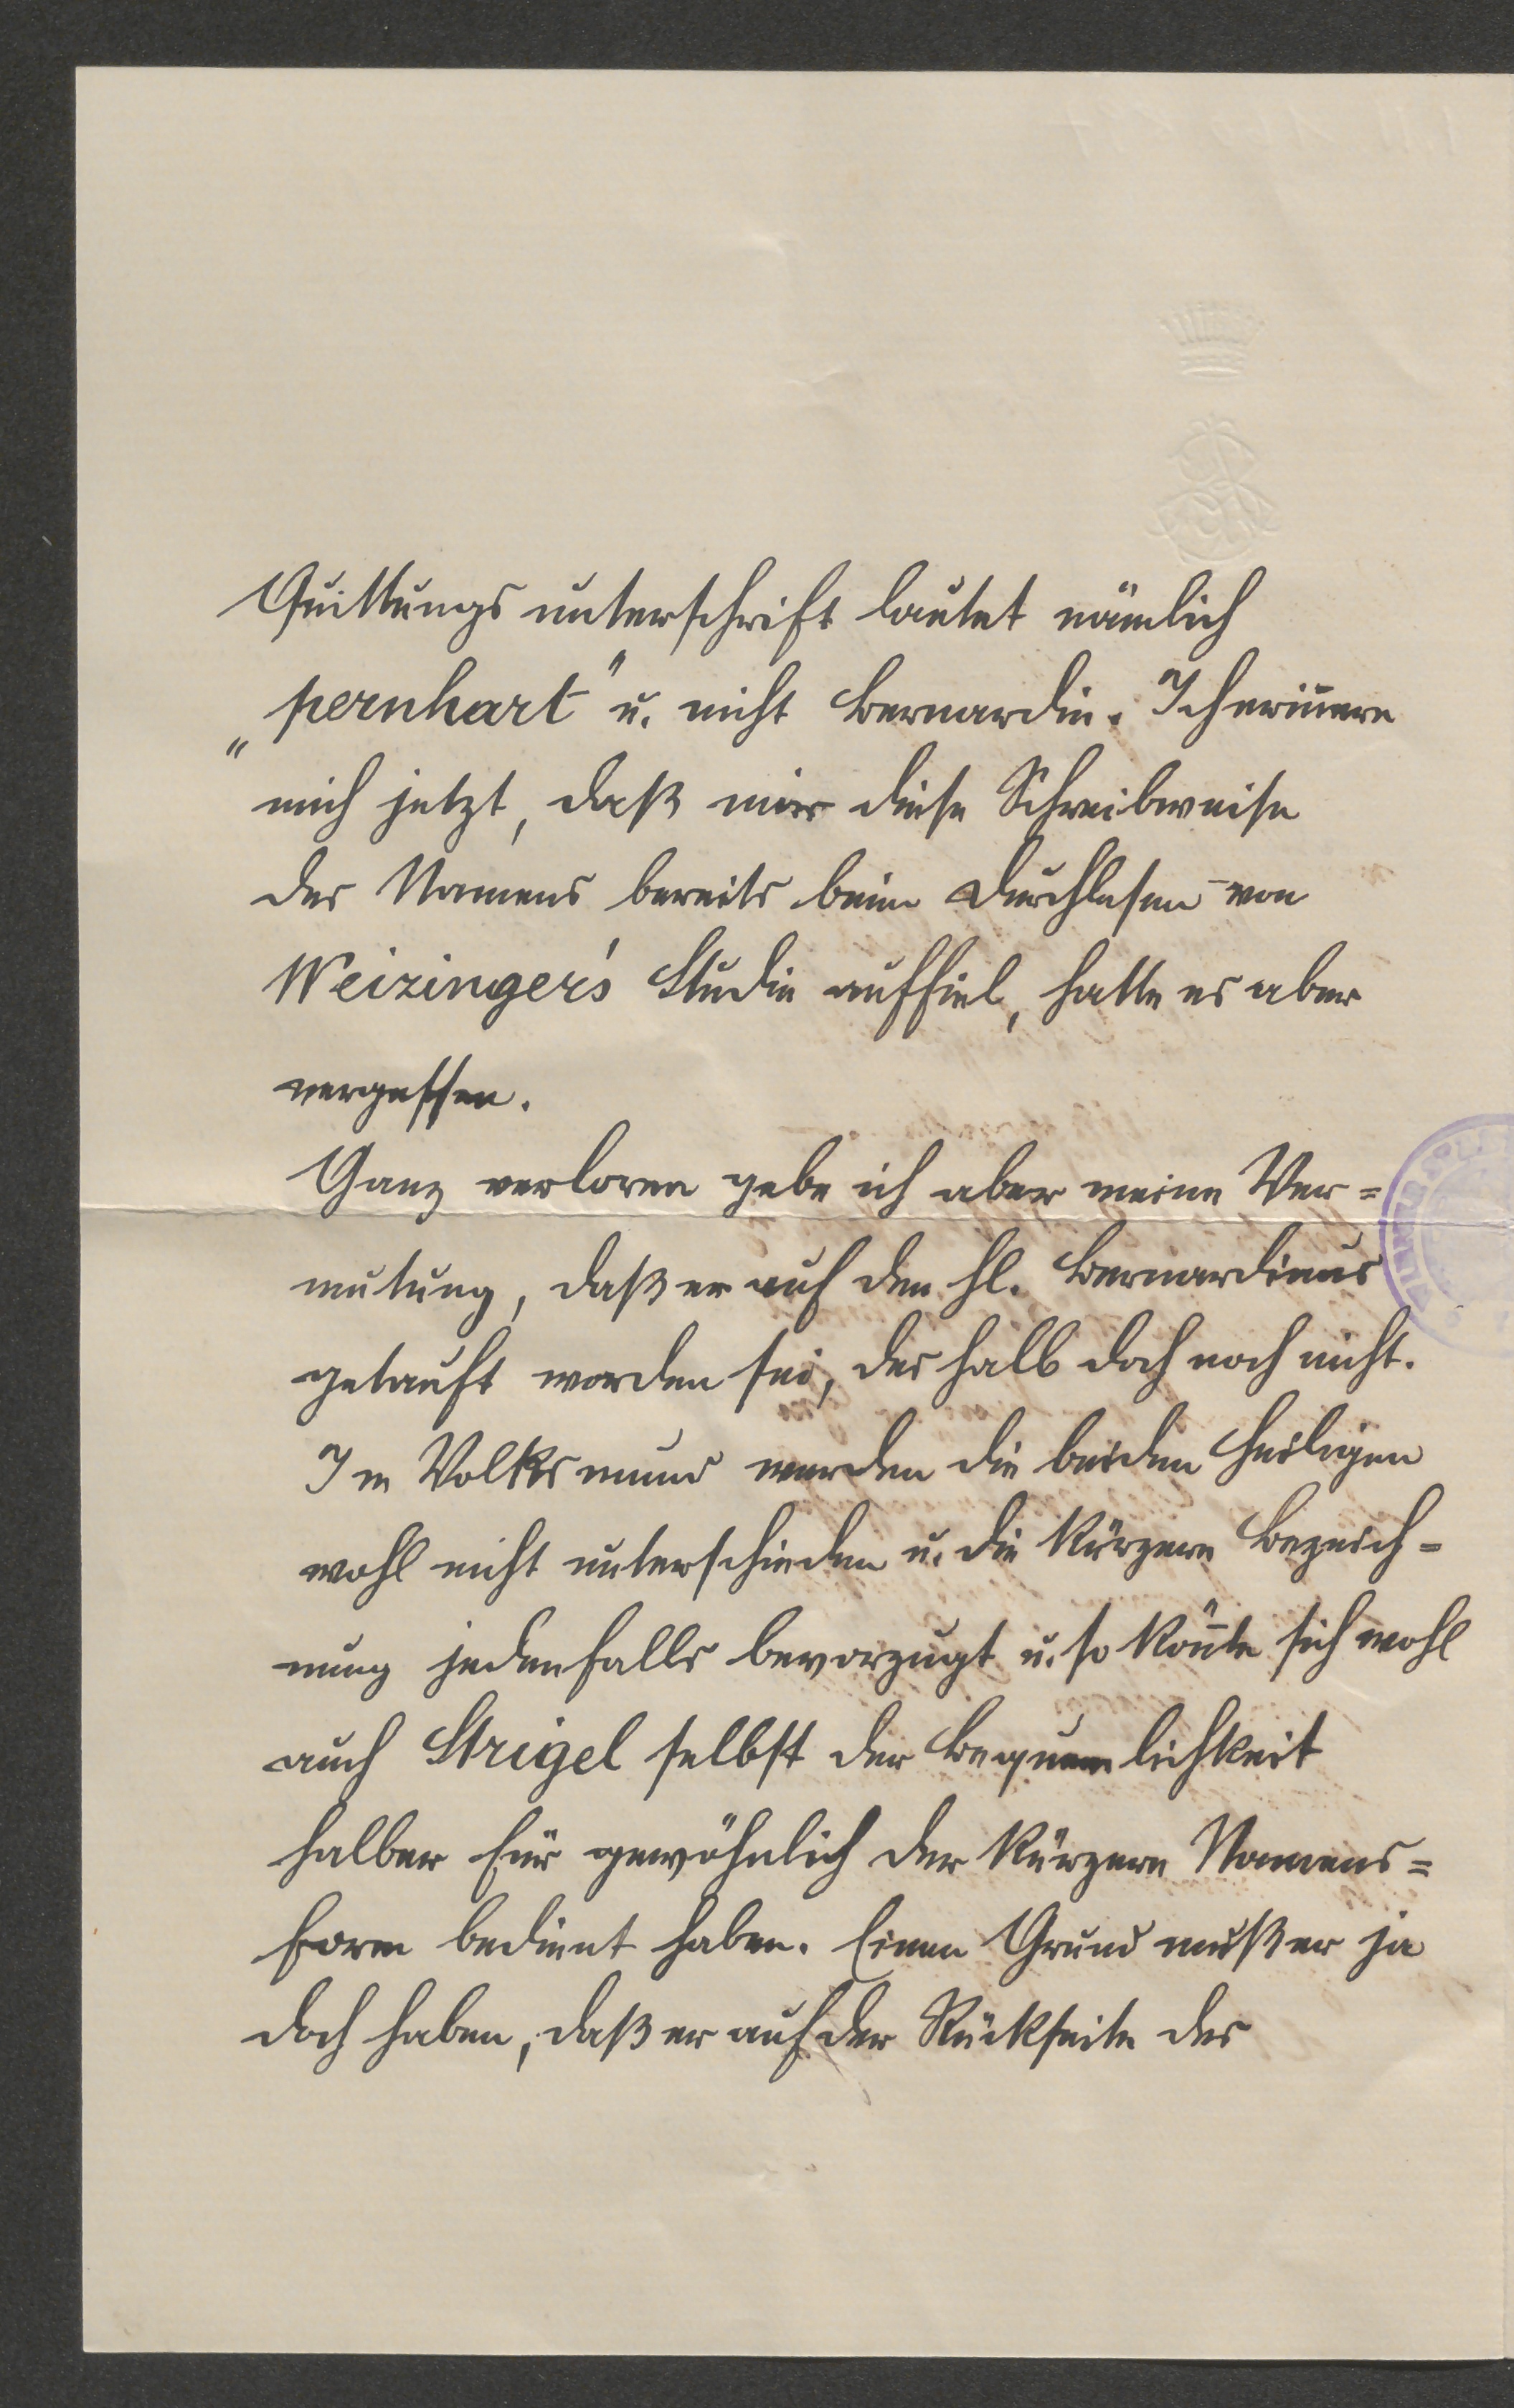 Quittungsunterschrift lautet nämlich
„pernhart" u. nicht Bernardin. Ich erin̄ere
mich jetzt, daß mir diese Schreibweise
des Namens bereits beim Durchlesen von
Weizinger's Studie auffiel, hatte es aber
vergessen.
Ganz verloren gebe ich aber meine Ver=
mutung, daß er auf den hl. Bernardinus
getauft worden sei, deshalb doch noch nicht.
Im Volksmund werden die beiden Heiligen
wohl nicht unterschieden u. die kürzere Bezeich=
nung jedenfalls bevorzugt u. so kön̄te sich wohl
auch Strigel selbst der Bequemlichkeit
halber für gewöhnlich der kürzern Namens=
form bedient haben. Einen Grund muß er ja
doch haben, daß er auf der Rückseite des